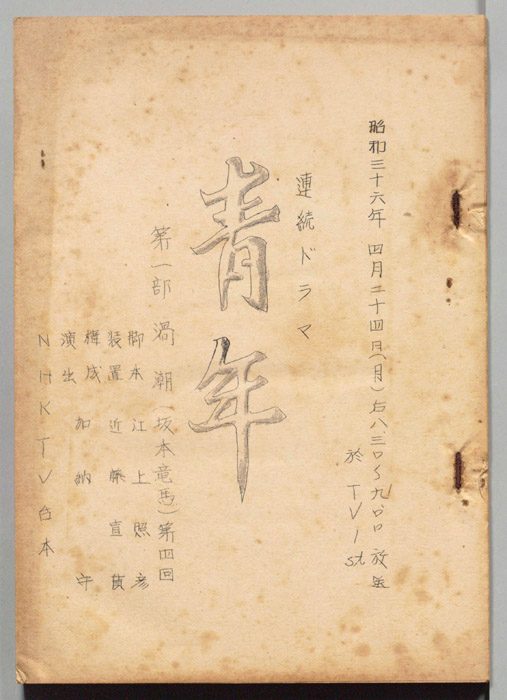 昭和三十六年 四月二十四日(月)后八、三〇〜九、〇〇 放送
於 TV 1 st
連続ドラマ
青年
第一部 渦潮(坂本竜馬)第四回
脚本 江上照彦
装置 近藤宣
構成
演出 加納 守
NHK TV 台本